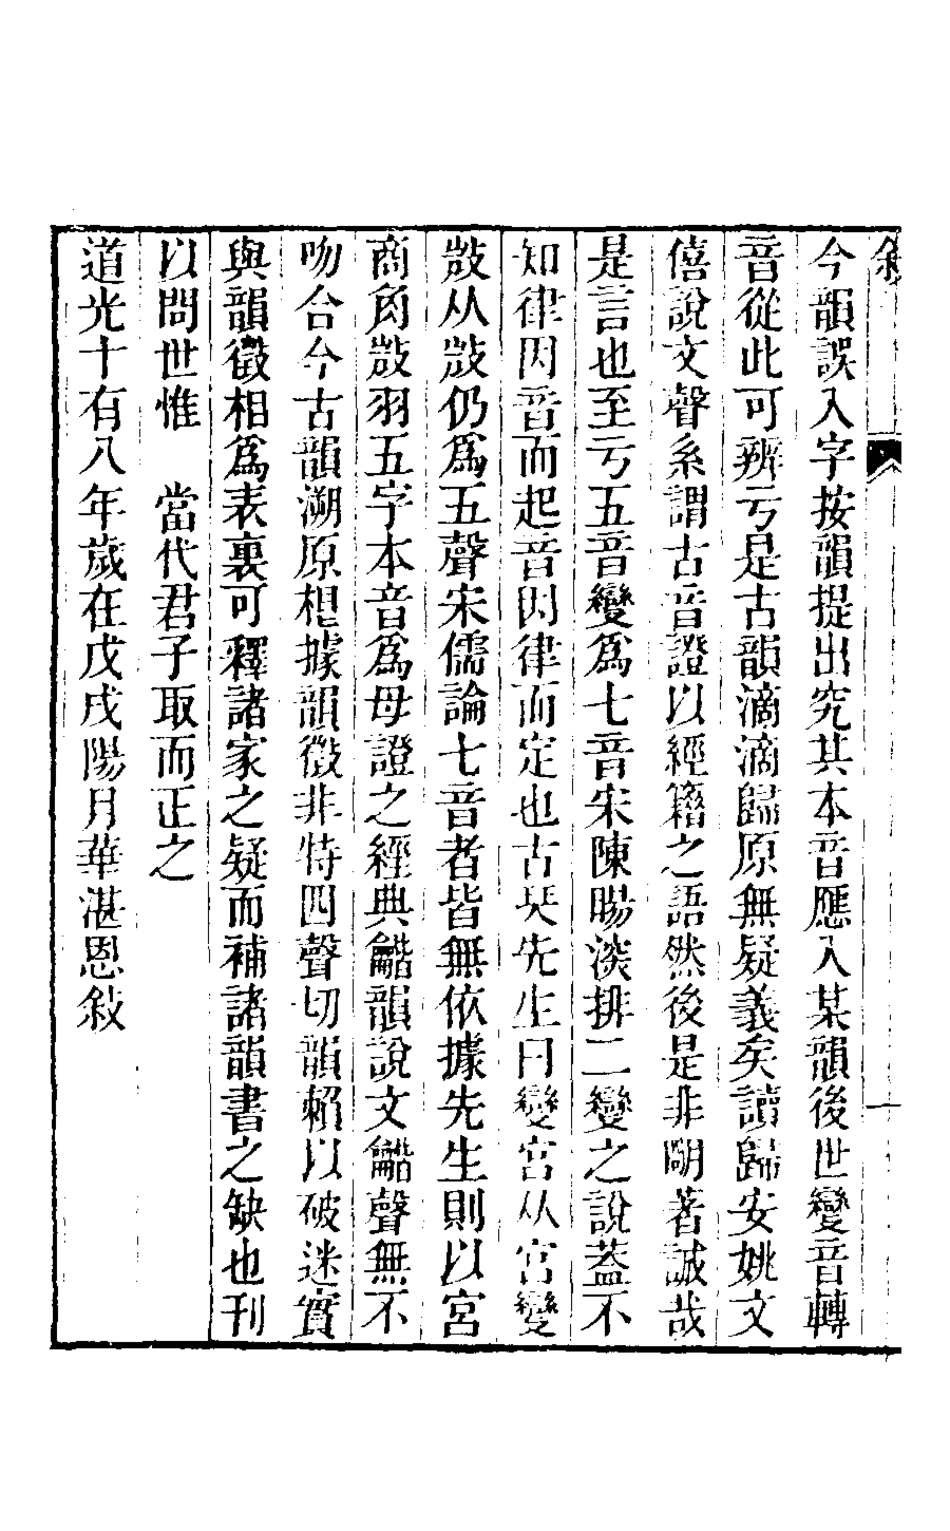 敘
一
今韻誤入字按韻提出究其本音應入某韻後世變音轉
音從此可辨亏是古韻滴滴歸原無疑義矣讀歸安姚文
僖說文聲系謂古音證以經籍之語然後是非朙著誠哉
是言也至亏五音變爲七音宋陳暘淡排二變之說葢不
知律因音而起音因律而定也古琹先生曰變宮从宮變
敳从敳仍爲五聲宋儒論七音者皆無依據先生則以宮
商角敳羽五字本音爲母證之經典龤韻說文龤聲無不
吻合今古韻溯原根據韻徵非特四聲切韻賴以破迷實
與韻徵相爲表裏可釋諸家之疑而補諸韻書之缺也刊
以問世惟　當代君子取而正之
道光十有八年歲在戊戌陽月華湛恩敍